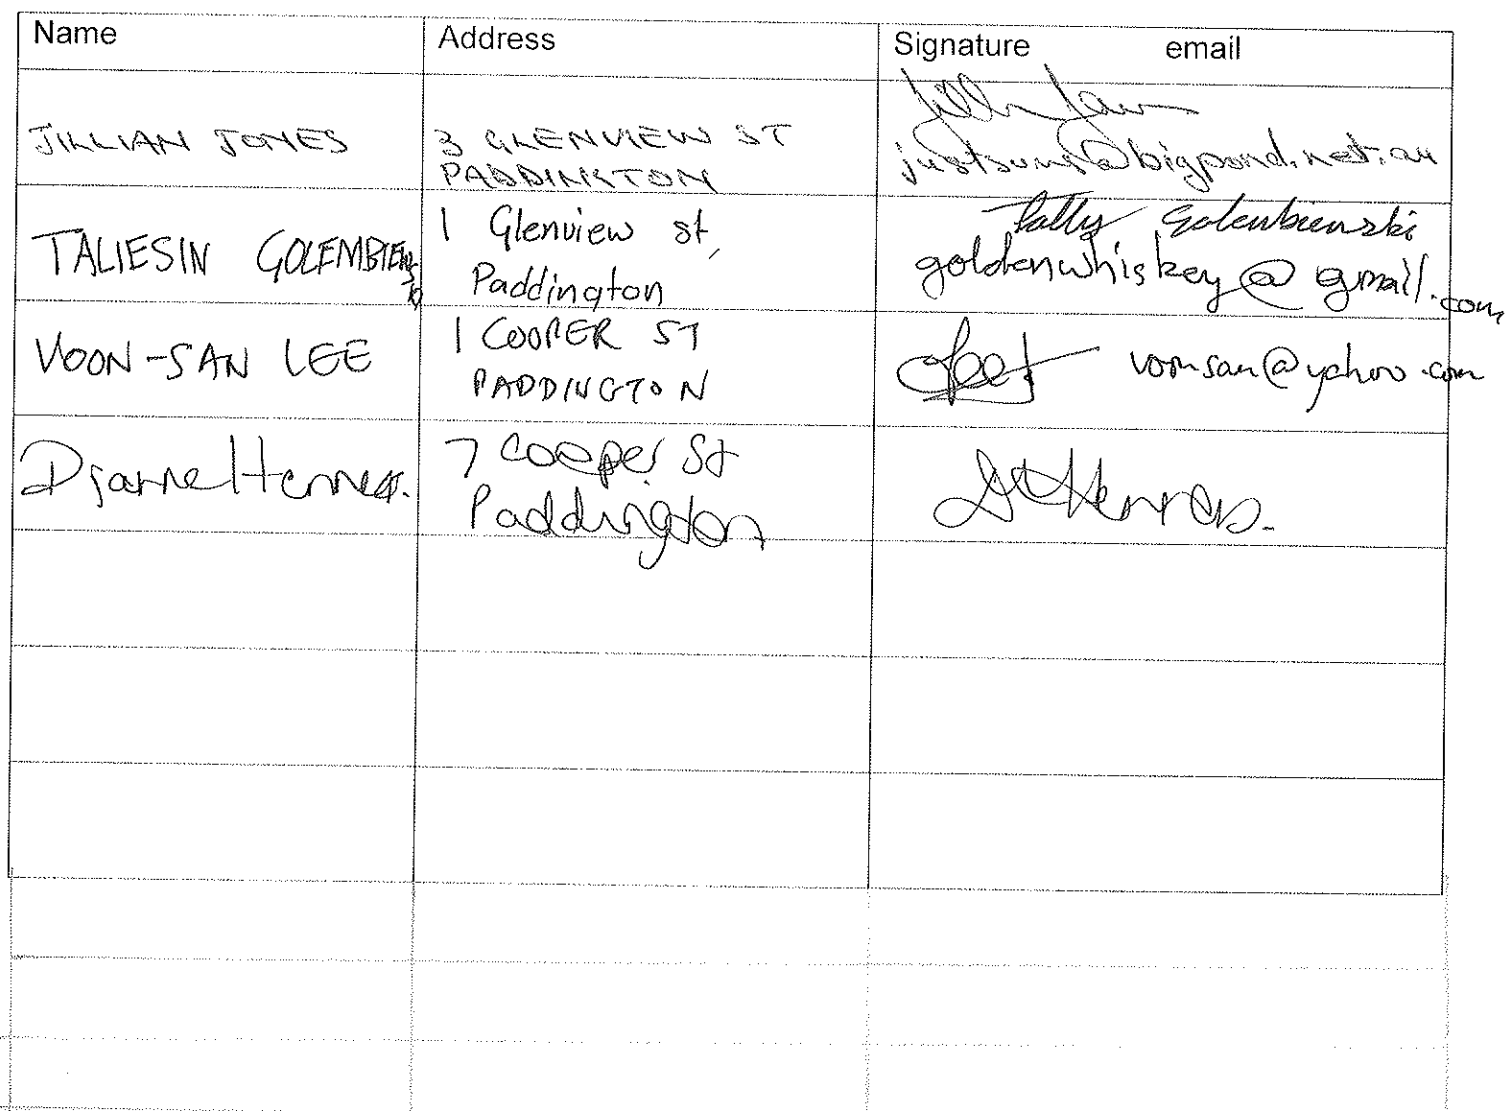 Name Address Signature email
JILLIAN JONES
3 GLENVIEW ST
PADDINGTON
TALIESIN GOLEMBIEWSKI
1 Glenview st,
Paddington
Tally Golembiewski
goldenwhiskey@gmail.com
VOON-SAN LEE
1 COOPER ST
PADDINGTON
voonsan@yahoo.com
7 Cooper St
Paddington